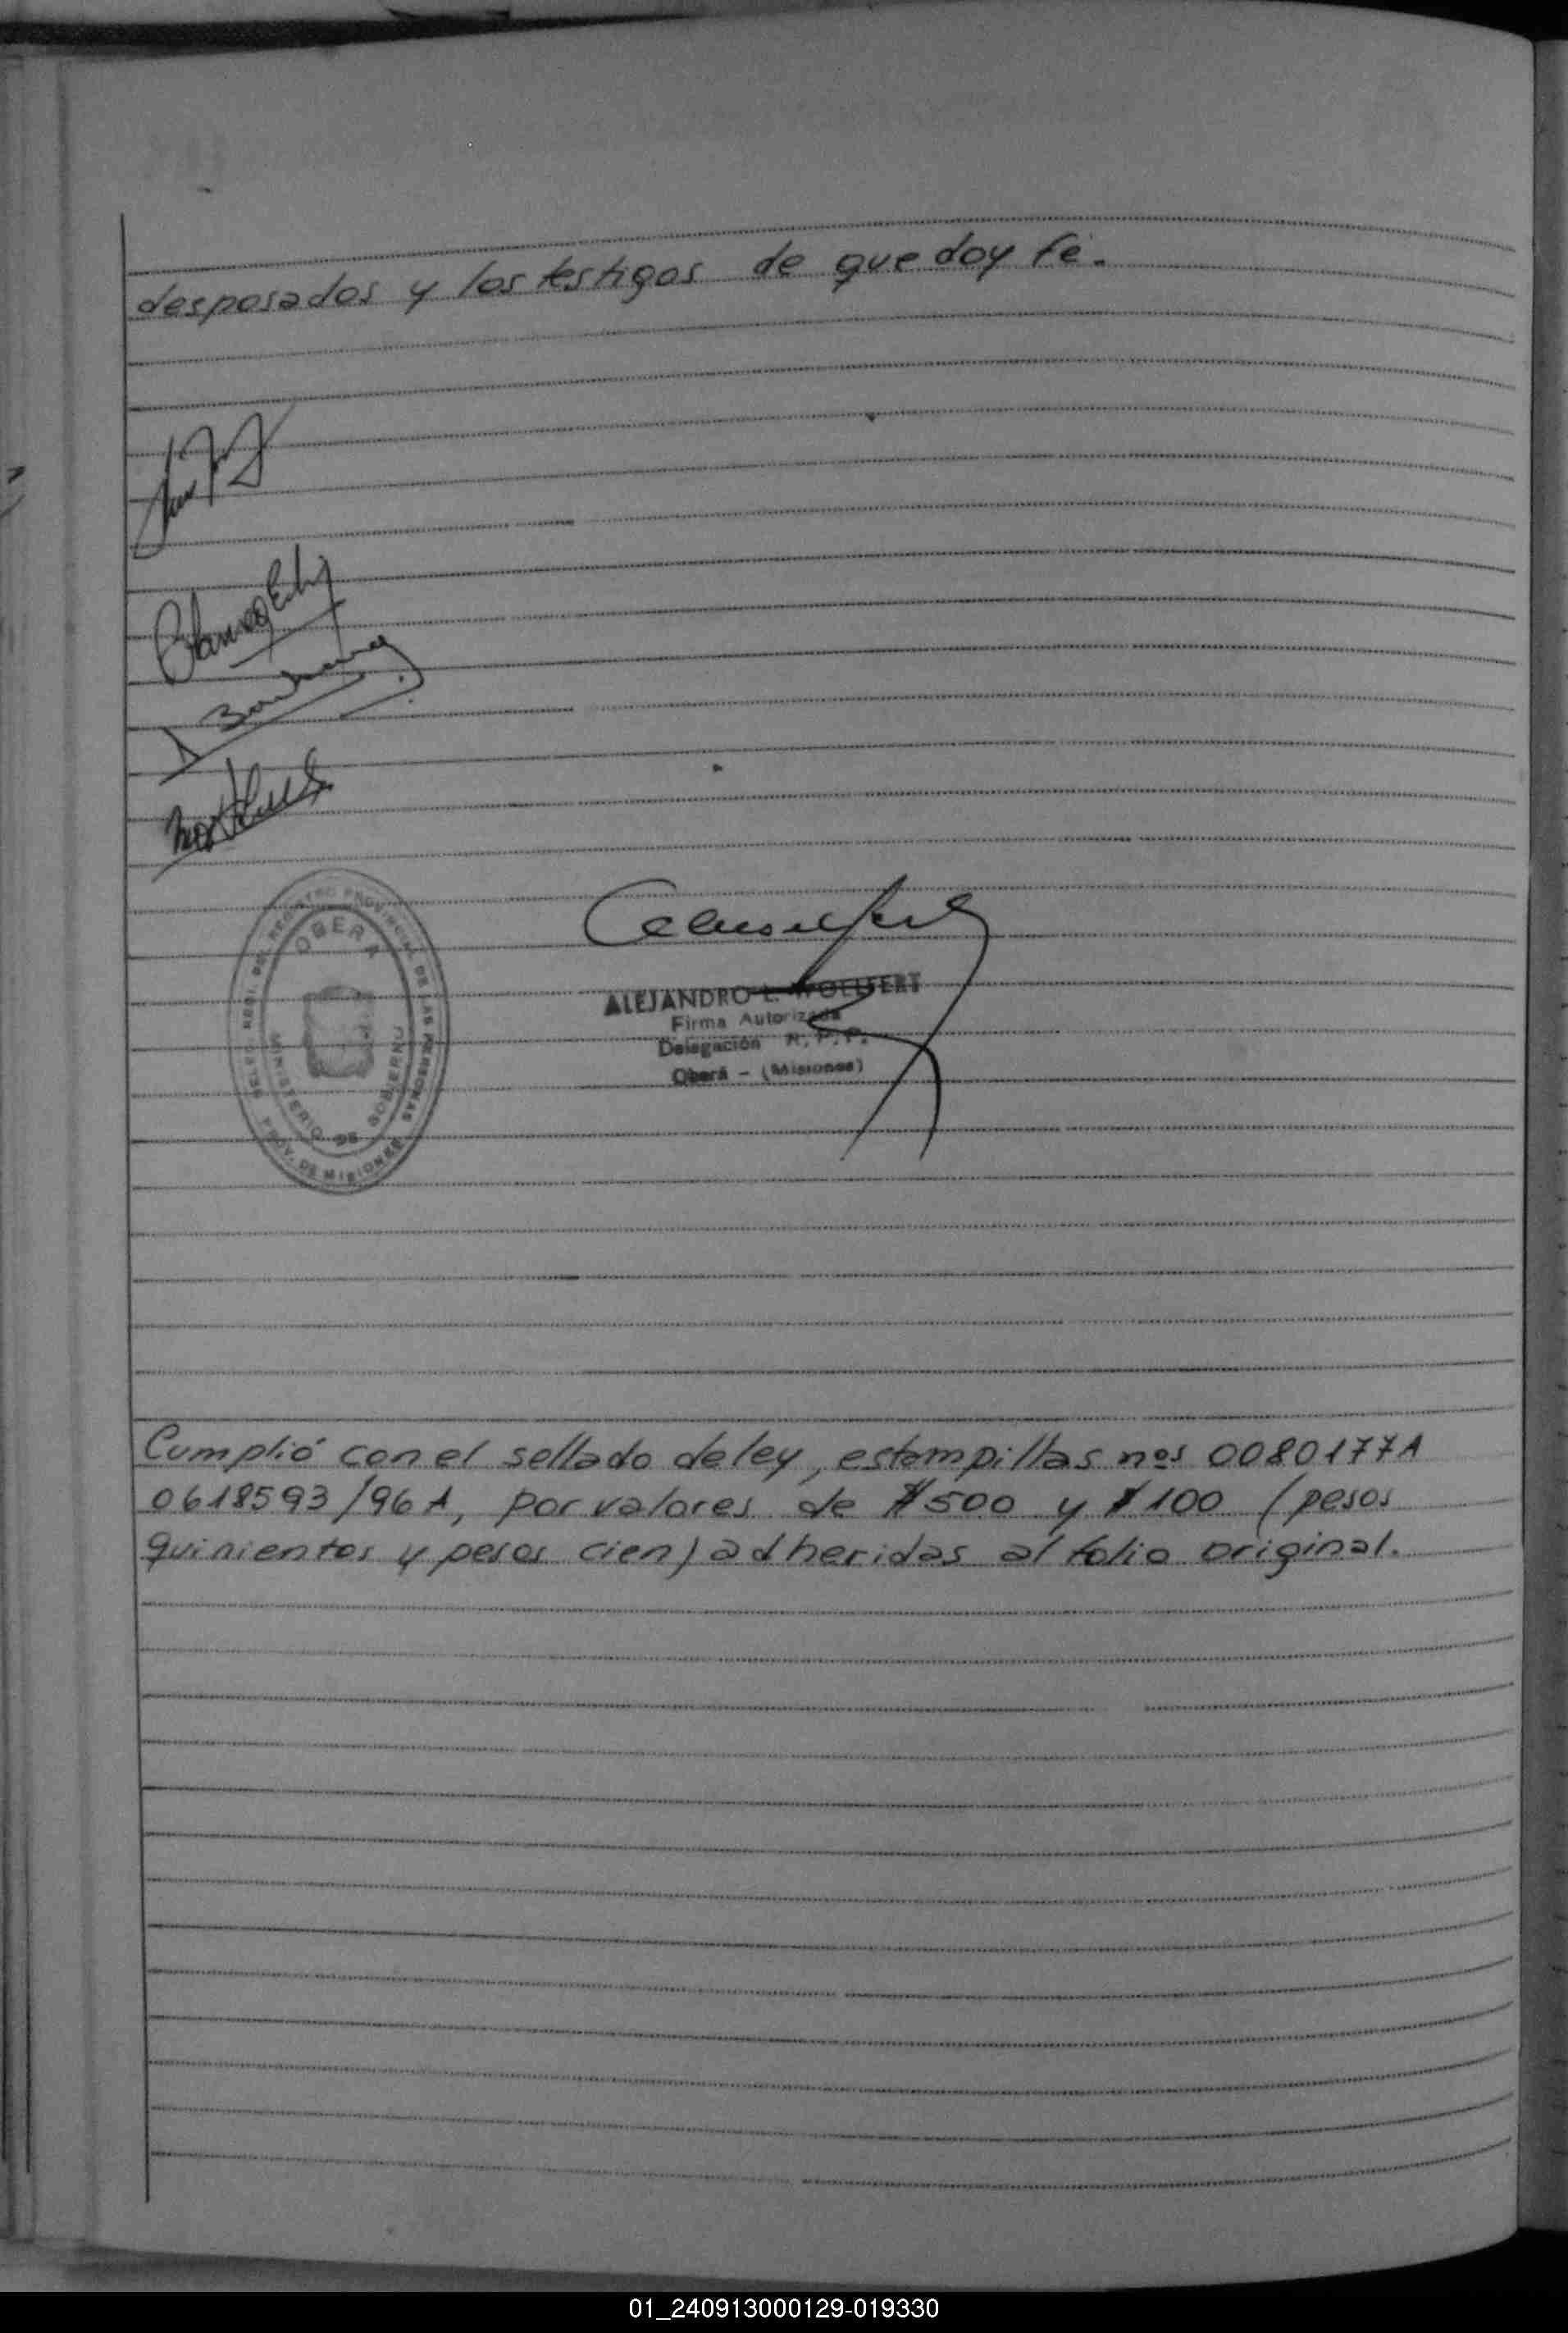 desposados y los testigos de que doy fé.
DEL REGISTRO PROVINCIAL DE LAS PERSONAS
OBERA
MINISTERIO DE GOBIERNO
PROV. DE MISIONES
ALEJANDRO L. WOLLFERT
Firma Autorizada
Delegación R. P. P.
Oberá - (Misiones)
Cumplió con el sellado de ley, estampillas nos 0080177A
0618593/96A, por valores de $500 y $100 (pesos
quinientos y pesos cien) adheridas al folio original.
01_240913000129-019330